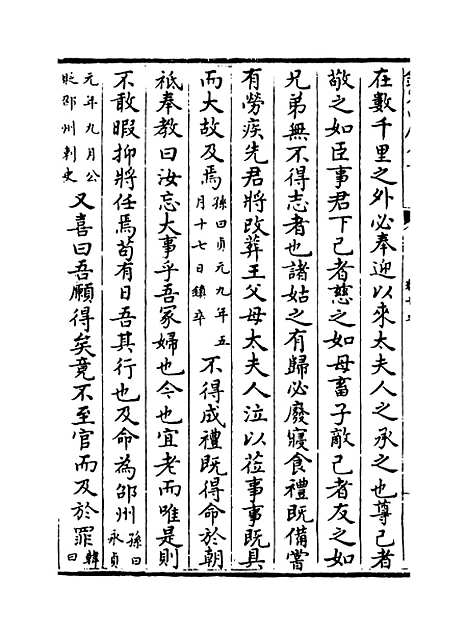 在數千里之外必奉迎以來太夫人之承之也尊己者
敬之如臣事君下己者慈之如母畜子敵己者友之如
兄弟無不得志者也諸姑之有歸必廢寢食禮既備嘗
有勞疾先君將改葬王父母太夫人泣以莅事事既具
而大故及焉孫曰貞元九年五月十七日鎮卒不得成禮既得命於朝
祗奉教曰汝忘大事乎吾冢婦也今也宜老而唯是則
不敢暇抑將任焉苟有日吾其行也及命為邵州孫曰永貞
元年九月公貶邵州刺史又喜曰吾願得矣竟不至官而及於罪韓曰